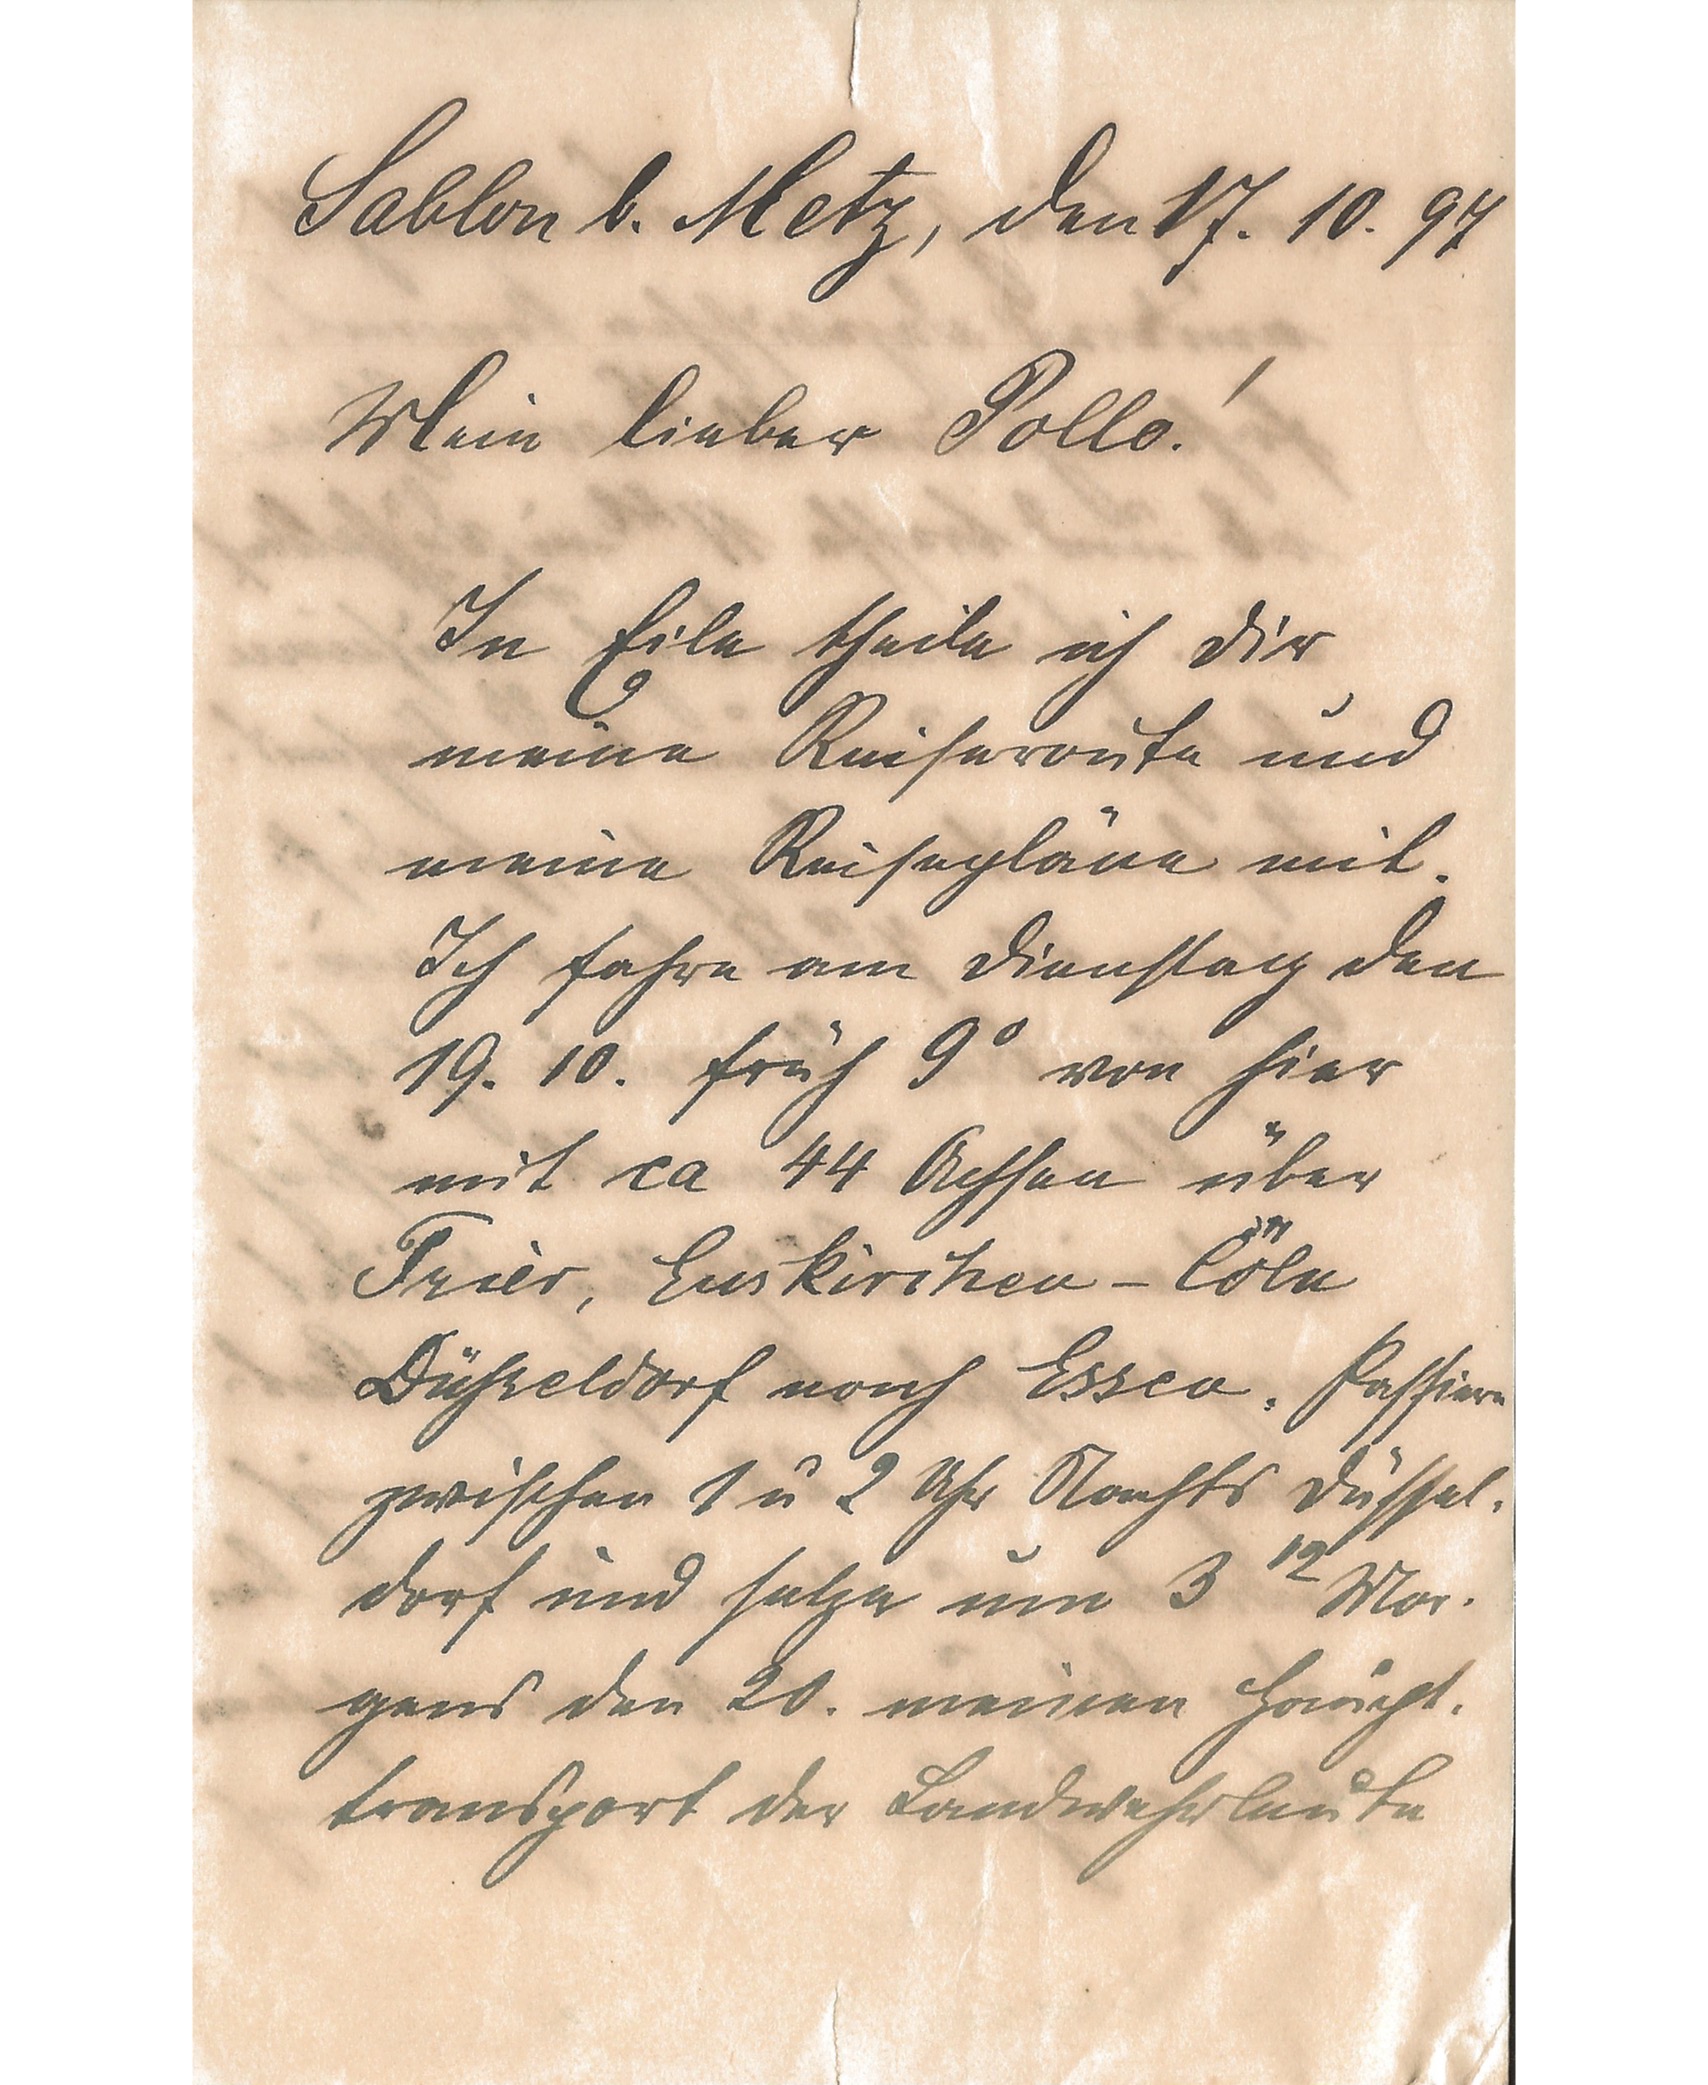 Sablon b. Metz, den 17. 10. 97
Mein lieber Pollo!
In Eile theile ich Dir
meine Reiseroute und
meine Reisepläne mit.
Ich fahre am Dienstag den
19. 10. früh 9⁰ von hier
mit ca 44 Achsen über
Trier, Euskirchen - Cöln
Düsseldorf nach Essen. Passiere
zwischen 1 u 2 Uhr Nachts Düssel-
dorf und setze um 3 12 Mor-
gens den 20. meinen Haupt-
transport der Landwehrleute